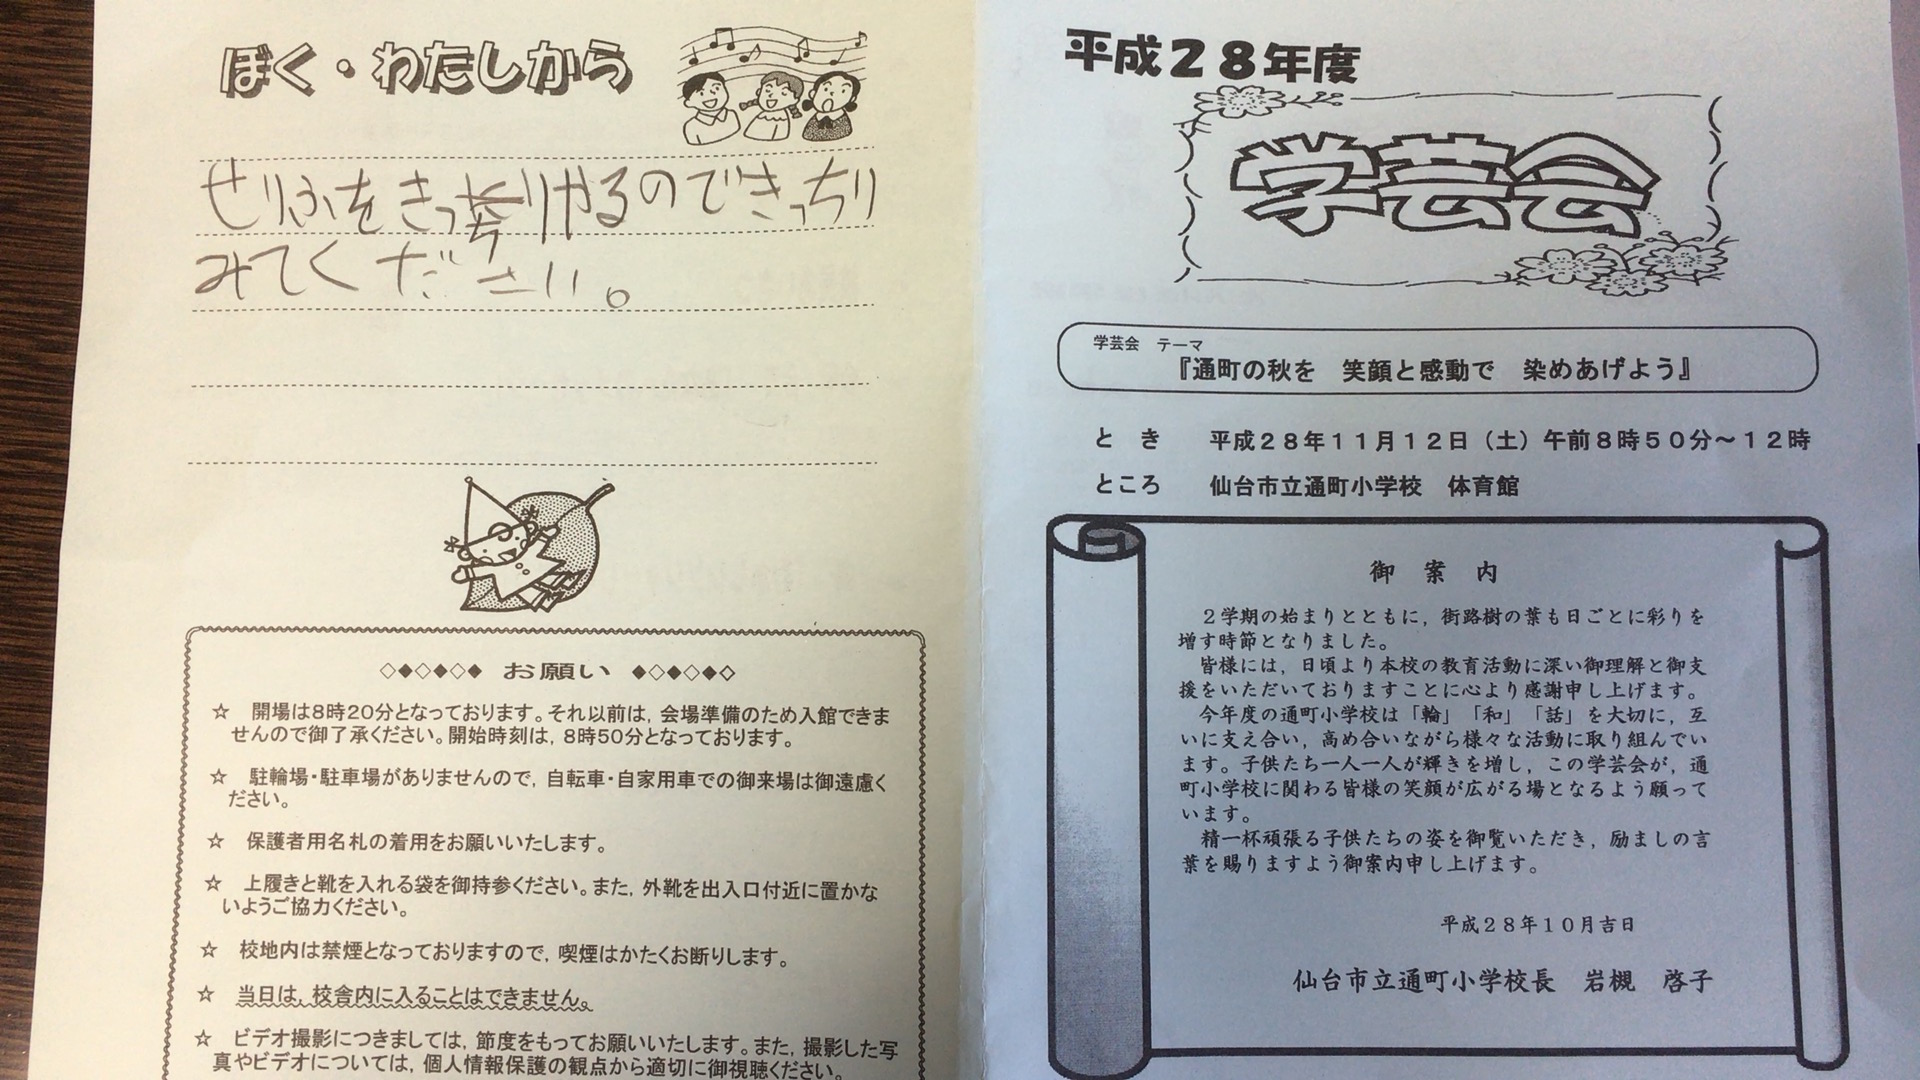 ぼく・わたしから
せりふをきっちりやるのできっちり
みてください。
◇◆◇◆◇◆ お願い ◆◇◆◇◆◇
☆ 開場は8時20分となっております。それ以前は，会場準備のため入館できま
せんので御了承ください。開始時刻は，8時50分となっております。
☆ 駐輪場・駐車場がありませんので，自転車・自家用車での御来場は御遠慮く
ださい。
☆ 保護者用名札の着用をお願いいたします。
☆ 上履きと靴を入れる袋を御持参ください。また，外靴を出入口付近に置かな
いようご協力ください。
☆ 校地内は禁煙となっておりますので，喫煙はかたくお断りします。
☆ 当日は，校舎内に入ることはできません。
☆ ビデオ撮影につきましては，節度をもってお願いいたします。また，撮影した写
真やビデオについては，個人情報保護の観点から適切に御視聴ください。
平成２８年度
学芸会
学芸会 テーマ
『通町の秋を 笑顔と感動で 染めあげよう』
と き 平成２８年１１月１２日（土）午前８時５０分～１２時
ところ 仙台市立通町小学校 体育館
御 案 内
２学期の始まりとともに，街路樹の葉も日ごとに彩りを
増す時節となりました。
皆様には，日頃より本校の教育活動に深い御理解と御支
援をいただいておりますことに心より感謝申し上げます。
今年度の通町小学校は「輪」「和」「話」を大切に，互
いに支え合い，高め合いながら様々な活動に取り組んでい
ます。子供たち一人一人が輝きを増し，この学芸会が，通
町小学校に関わる皆様の笑顔が広がる場となるよう願って
います。
精一杯頑張る子供たちの姿を御覧いただき，励ましの言
葉を賜りますよう御案内申し上げます。
平成２８年１０月吉日
仙台市立通町小学校長 岩槻 啓子